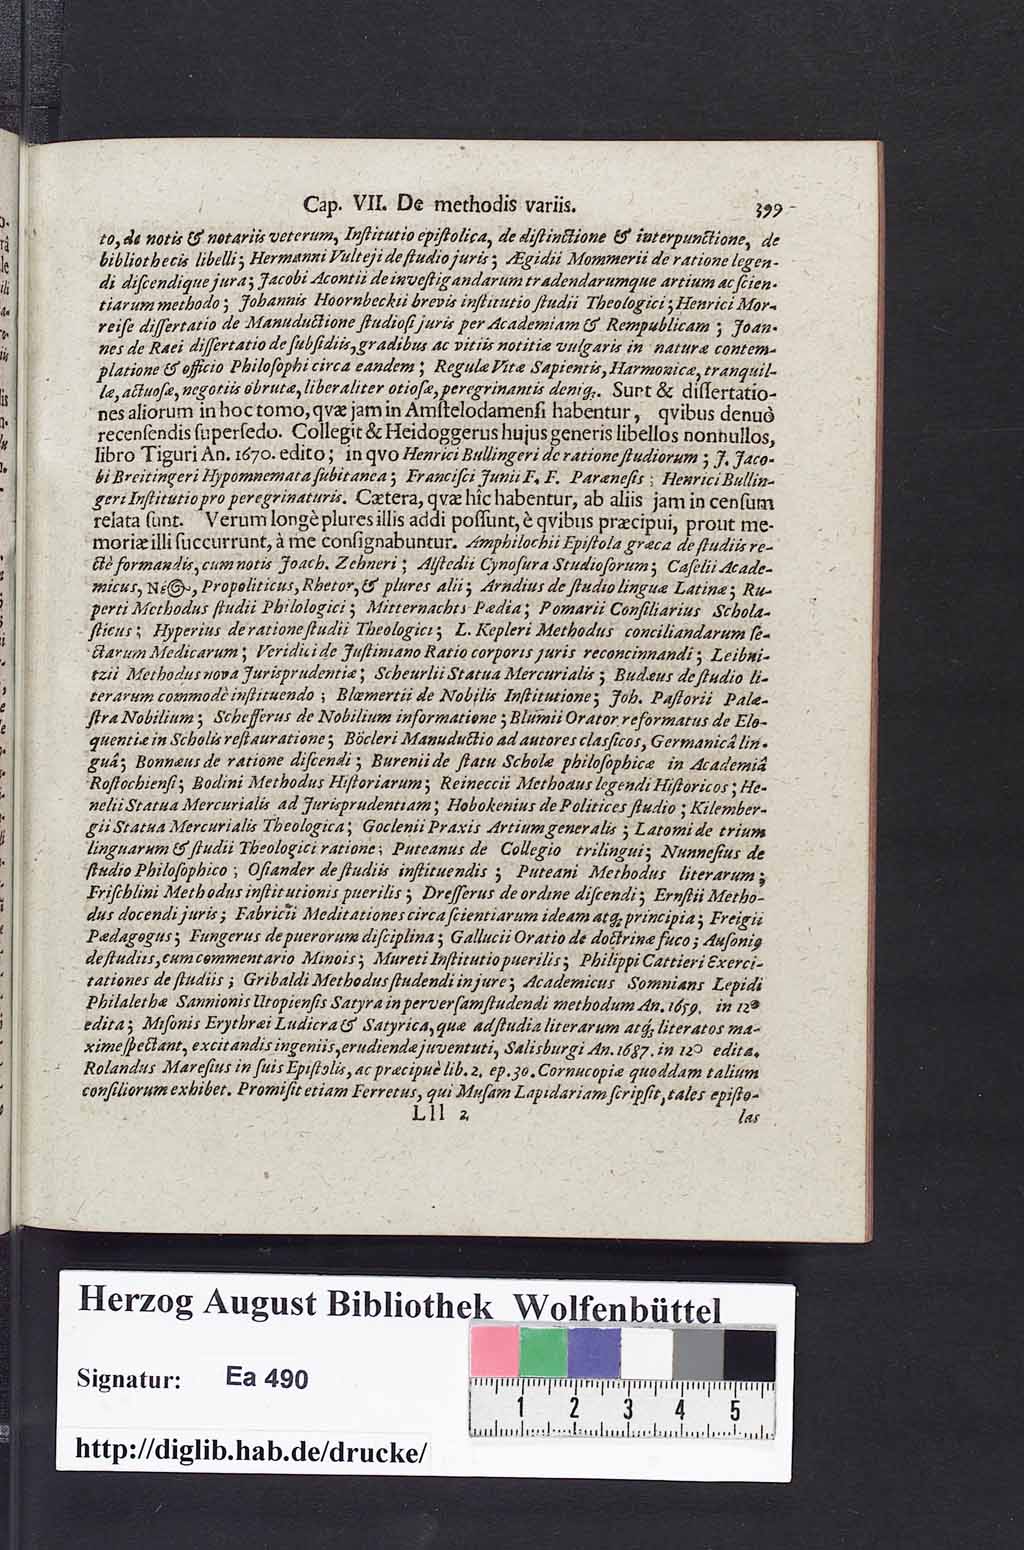 Cap. VII. De methodis variis. 399
to, de notis & notariis veterum, Inſtitutio epiſtolica, de diſtinctione & interpunctione, de
bibliothecis libelli; Hermanni Vulteji de ſtudio juris; Ægidii Mommerii de ratione legen-
di diſcendique jura; Jacobi Acontii de inveſtigandarum tradendarumque artium ac ſcien-
tiarum methodo; Johannis Hoornbeckii brevis inſtitutio ſtudii Theologici; Henrici Mor-
reiſe diſſertatio de Manuductione ſtudioſi juris per Academiam & Rempublicam; Joan-
nes de Raei diſſertatio de ſubſidiis, gradibus ac vitiis notitiæ vulgaris in naturæ contem-
platione & officio Philoſophi circa eandem; Regulæ Vitæ Sapientis, Harmonicæ, tranquil-
læ, actuoſæ, negotiis obrutæ, liberaliter otioſæ, peregrinantis deniq;. Sunt & diſſertatio-
nes aliorum in hoc tomo, qvæ jam in Amſtelodamenſi habentur, qvibus denuò
recenſendis ſuperſedo. Collegit & Heidoggerus hujus generis libellos nonnullos,
libro Tiguri An. 1670. edito; in qvo Henrici Bullingeri de ratione ſtudiorum; J. Jaco-
bi Breitingeri Hypomnemata ſubitanea; Franciſci Junii F. F. Paræneſis; Henrici Bullin-
geri Inſtitutio pro peregrinaturis. Cætera, qvæ hîc habentur, ab aliis jam in cenſum
relata ſunt. Verum longè plures illis addi poſſunt, è qvibus præcipui, prout me-
moriæ illi ſuccurrunt, à me conſignabuntur. Amphilochii Epiſtola græca de ſtudiis re-
ctè formandis, cum notis Joach. Zehneri; Alſtedii Cynoſura Studioſorum; Caſelii Acade-
micus, Propoliticus, Rhetor, & plures alii; Arndius de ſtudio linguæ Latinæ; Ru-
perti Methodus ſtudii Philologici; Mitternachts Pædia; Pomarii Conſiliarius Schola-
ſticus; Hyperius de ratione ſtudii Theologici; L. Kepleri Methodus conciliandarum ſe-
ctarum Medicarum; Veridici de Juſtiniano Ratio corporis juris reconcinnandi; Leibni-
tzii Methodus nova Jurisprudentiæ; Scheurlii Statua Mercurialis; Budæus de ſtudio li-
terarum commodè inſtituendo; Blœmertii de Nobilis Inſtitutione; Joh. Paſtorii Palæ-
ſtra Nobilium; Schefferus de Nobilium informatione; Blumii Orator reformatus de Elo-
quentiæ in Scholis reſtauratione; Böcleri Manuductio ad autores claſſicos, Germanicâ lin-
guâ; Bonnæus de ratione diſcendi; Burenii de ſtatu Scholæ philoſophicæ in Academiâ
Roſtochienſi; Bodini Methodus Hiſtoriarum; Reineccii Methodus legendi Hiſtoricos; He-
nelii Statua Mercurialis ad Jurisprudentiam; Hobokenius de Politices ſtudio; Kilember-
gii Statua Mercurialis Theologica; Goclenii Praxis Artium generalis; Latomi de trium
linguarum & ſtudii Theologici ratione; Puteanus de Collegio trilingui; Nunneſius de
ſtudio Philoſophico; Oſiander de ſtudiis inſtituendis; Puteani Methodus literarum;
Friſchlini Methodus inſtitutionis puerilis; Dreſſerus de ordine diſcendi; Ernſtii Metho-
dus docendi juris; Fabricii Meditationes circa ſcientiarum ideam atq; principia; Freigii
Pædagogus; Fungerus de puerorum diſciplina; Gallucii Oratio de doctrinæ fuco; Auſonio
de ſtudiis, cum commentario Minois; Mureti Inſtitutio puerilis; Philippi Cattieri Exerci-
tationes de ſtudiis; Gribaldi Methodus ſtudendi in jure; Academicus Somnians Lepidi
Philalethæ Sannionis Utopienſis Satyra in perverſam ſtudendi methodum An. 1659. in 12º
edita; Miſonis Erythræi Ludicra & Satyrica, quæ ad ſtudia literarum atq; literatos ma-
xime ſpectant, excitandis ingeniis, erudiendæ juventuti, Salisburgi An. 1687. in 12º edita.
Rolandus Mareſius in ſuis Epiſtolis, ac præcipuè lib. 2. ep. 30. Cornucopiæ quoddam talium
conſiliorum exhibet. Promiſit etiam Ferretus, qui Muſam Lapidariam ſcripſit, tales epiſto-
Lll 2 las
Herzog August Bibliothek Wolfenbüttel
Signatur: Ea 490
1 2 3 4 5
http://diglib.hab.de/drucke/